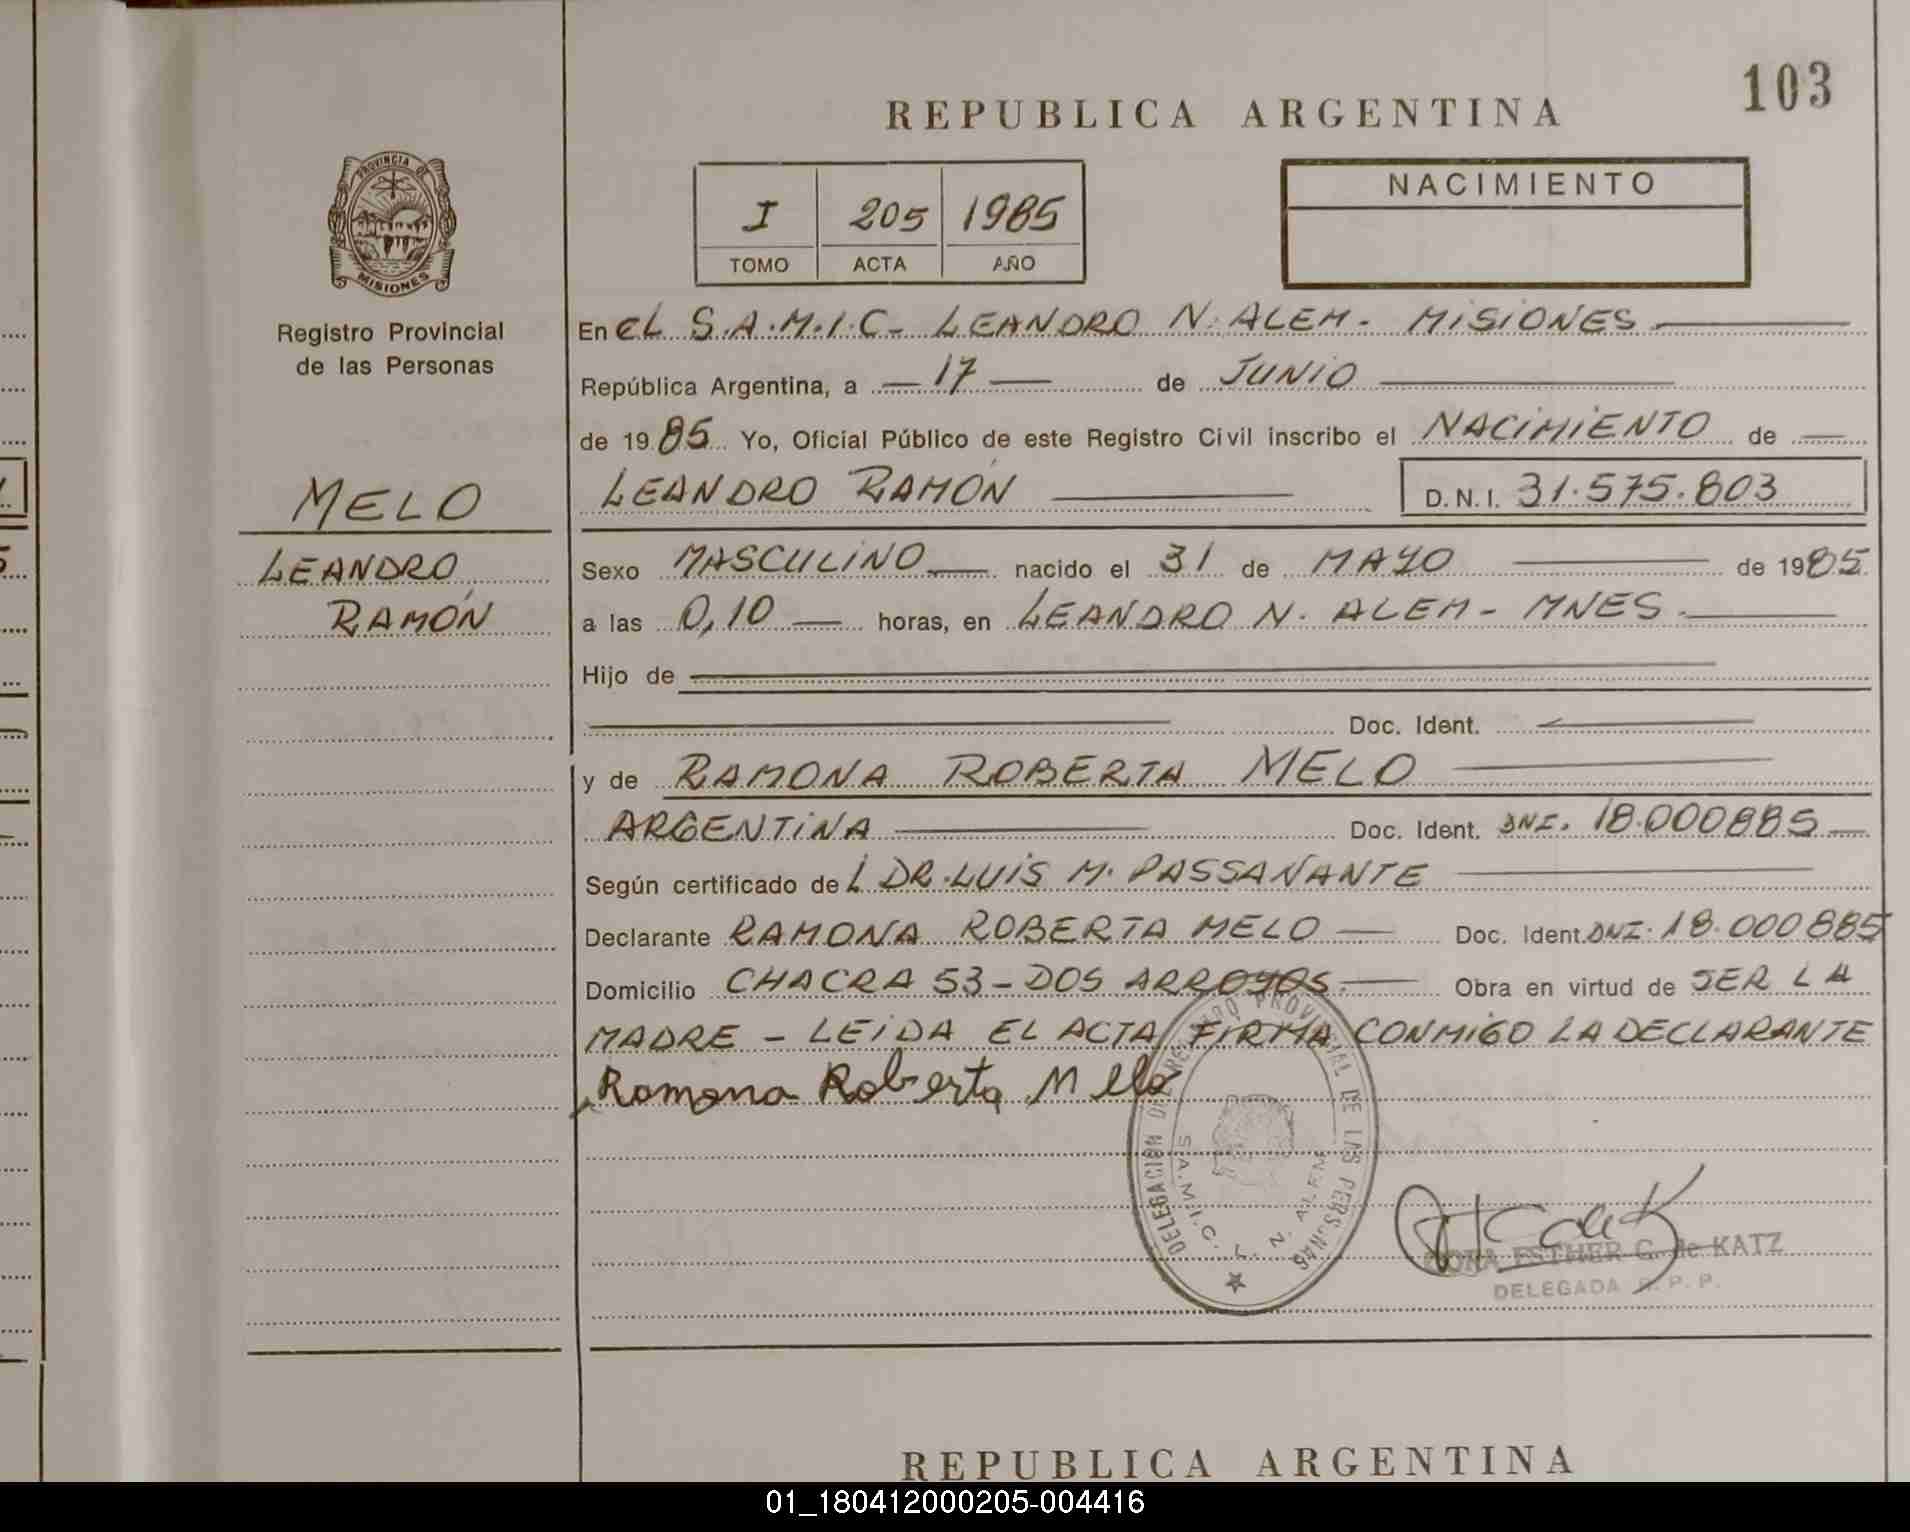 103
REPUBLICA ARGENTINA
PROVINCIA DE
MISIONES
I 205 1985
TOMO ACTA AÑO
NACIMIENTO
Registro Provincial
de las Personas
En eL S.A.M.I.C- LEANDRO N. ALEM- MISIONES
República Argentina, a 17 de JUNIO
de 1985 Yo, Oficial Público de este Registro Civil inscribo el NACIMIENTO de
MELO
LEANDRO RAMÓN D.N.I. 31.575.803
LEANDRO
RAMÓN
Sexo MASCULINO nacido el 31 de MAYO de 1985
a las 0,10 horas, en LEANDRO N. ALEM - MNES.
Hijo de
Doc. Ident.
y de RAMONA ROBERTA MELO
ARGENTINA Doc. Ident. DNI. 18.000885
Según certificado de L DR. LUIS M. PASSAÑANTE
Declarante RAMONA ROBERTA MELO Doc. Ident. DNI. 18.000885
Domicilio CHACRA 53 - DOS ARROYOS. Obra en virtud de SER LA
MADRE - LEIDA EL ACTA FIRMA CONMIGO LA DECLARANTE
Ramona Roberta Mello
DELEGACION DEL REGISTRO PROVINCIAL DE LAS PERSONAS
S.A.M.I.C. L. N. ALEM
ESTHER G. de KATZ
DELEGADA R. P. P.
REPUBLICA ARGENTINA
01_180412000205-004416